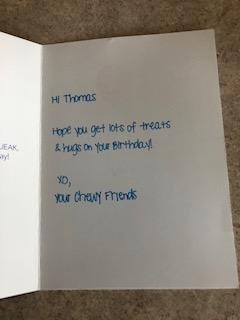 UEAK,
ay!
Hi Thomas
Hope you get lots of treats
& hugs on your Birthday!
XO,
Your Chewy Friends